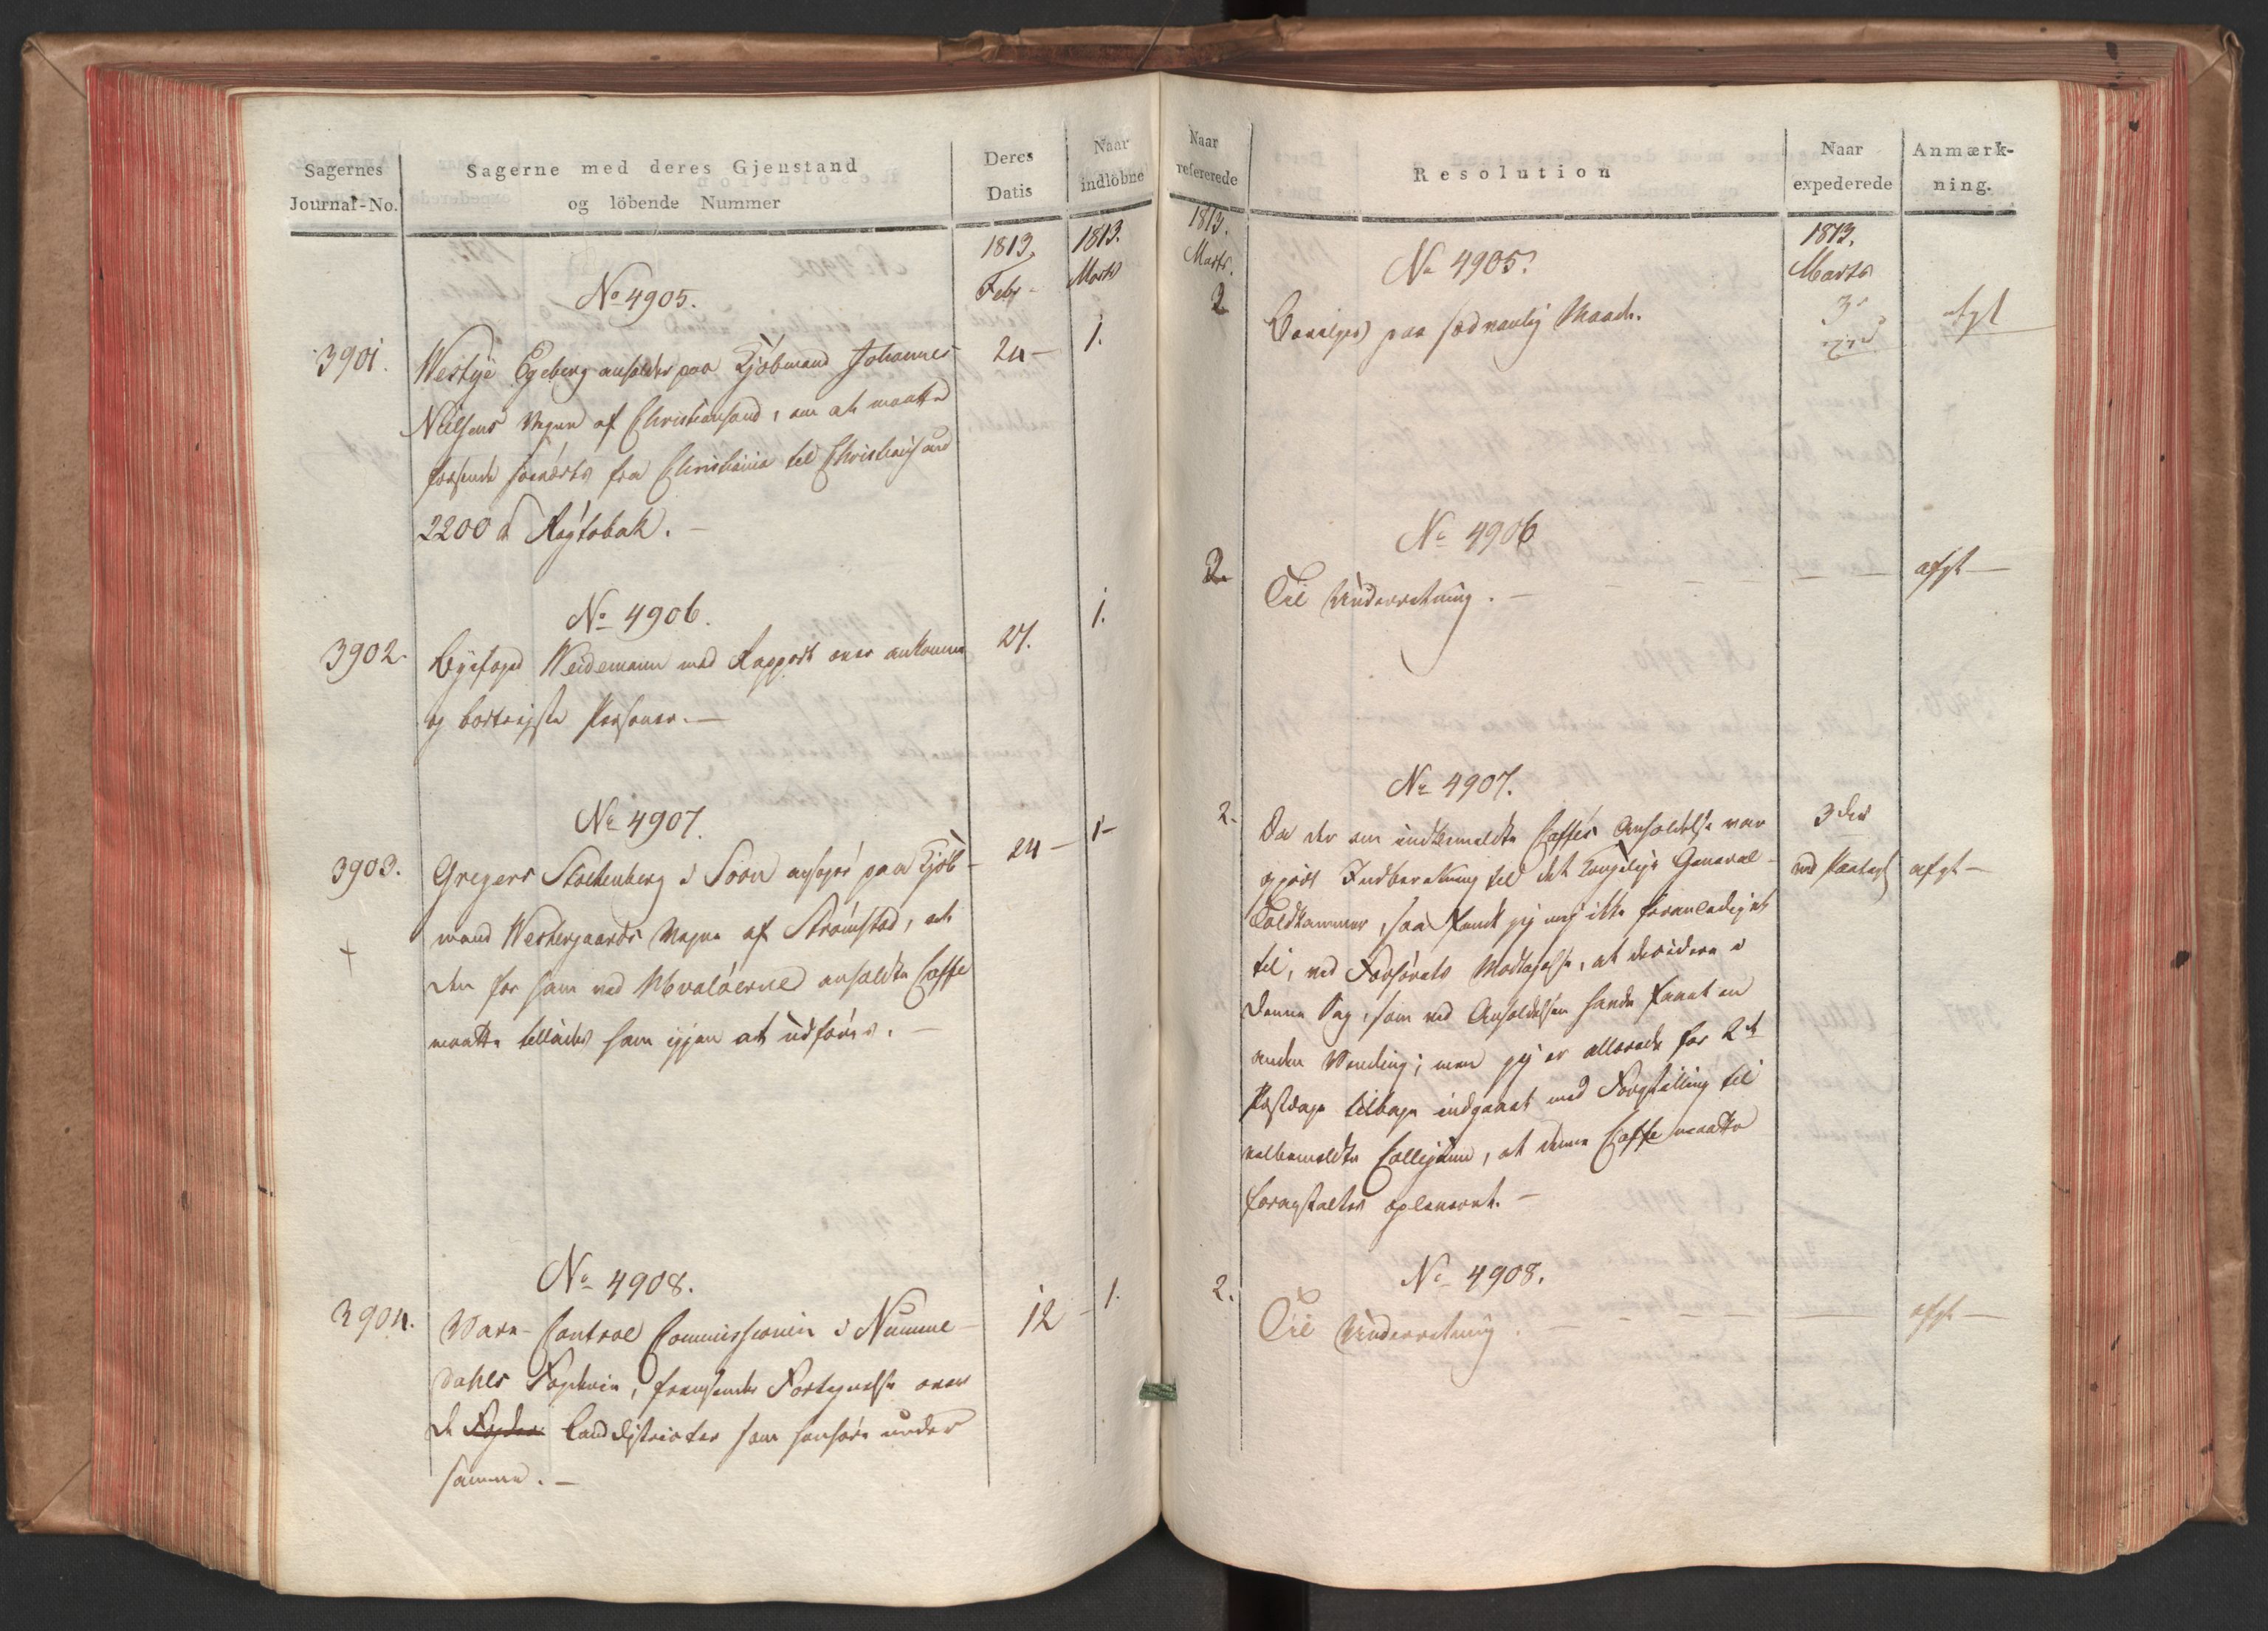 Sagernes
Journal-No.
Sagerne med deres Gjenstand
og löbende Nummer
Deres
Datis
Naar
indlöbne
1813.
Febr -
1813.
Marts
No 4905.
3901.
Westye Egeberg anholder paa Kjöbmand Johannes
24 -
1.
Nielsens Vegne af Christiansand, om at maatte
forsende söeværts fra Christiania til Christiansand
2200 ℔ Røgtobak. -
No 4906.
3902.
Byefoged Weidemann med Rapport over ankomne
27.
1.
og bortrejste Personer. -
No 4907.
3903.
Gregers Stoltenberg i Soon ansøger paa Kjöb-
24 -
1 -
mand Westergaards Vegne af Strømstad, at
den for ham ved Hvaløerne anholdte Caffe
maatte tillades ham igjen at udføres. -
No 4908.
3904.
Vare-Control Commissionen i Numme-
12 -
1.
dahls Fogderie, fremsender Fortegnelse over
de Landdistricter som henhøre under
samme. -
Naar
refererede
Resolution
Naar
expederede
Anmærk-
ning.
1813.
Marts.
1813.
Marts
No 4905.
2
Bevilges paa sædvanlig Maade.
3
afgt
No 4906
2.
Til Underretning. -
afgt -
No 4907.
2.
Da der om indbemeldte Caffes Anholdelse var
3die
gjort Indberetning til det Kongelige General-
ved Paategn
afgt -
Toldkammer, saa fandt jeg mig ikke foranlediget
til, ved Forhørets Modtagelse, at decidere i
denne Sag, som ved Anholdelsen havde faaet en
anden Vending; men jeg er allerede for 2de
Postdage tilbage indgaaet med Forestilling til
velbemeldte Collegium, at denne Caffe maatte
foranstaltes opleveret. -
No 4908.
2.
Til Underretning. -
afgt -